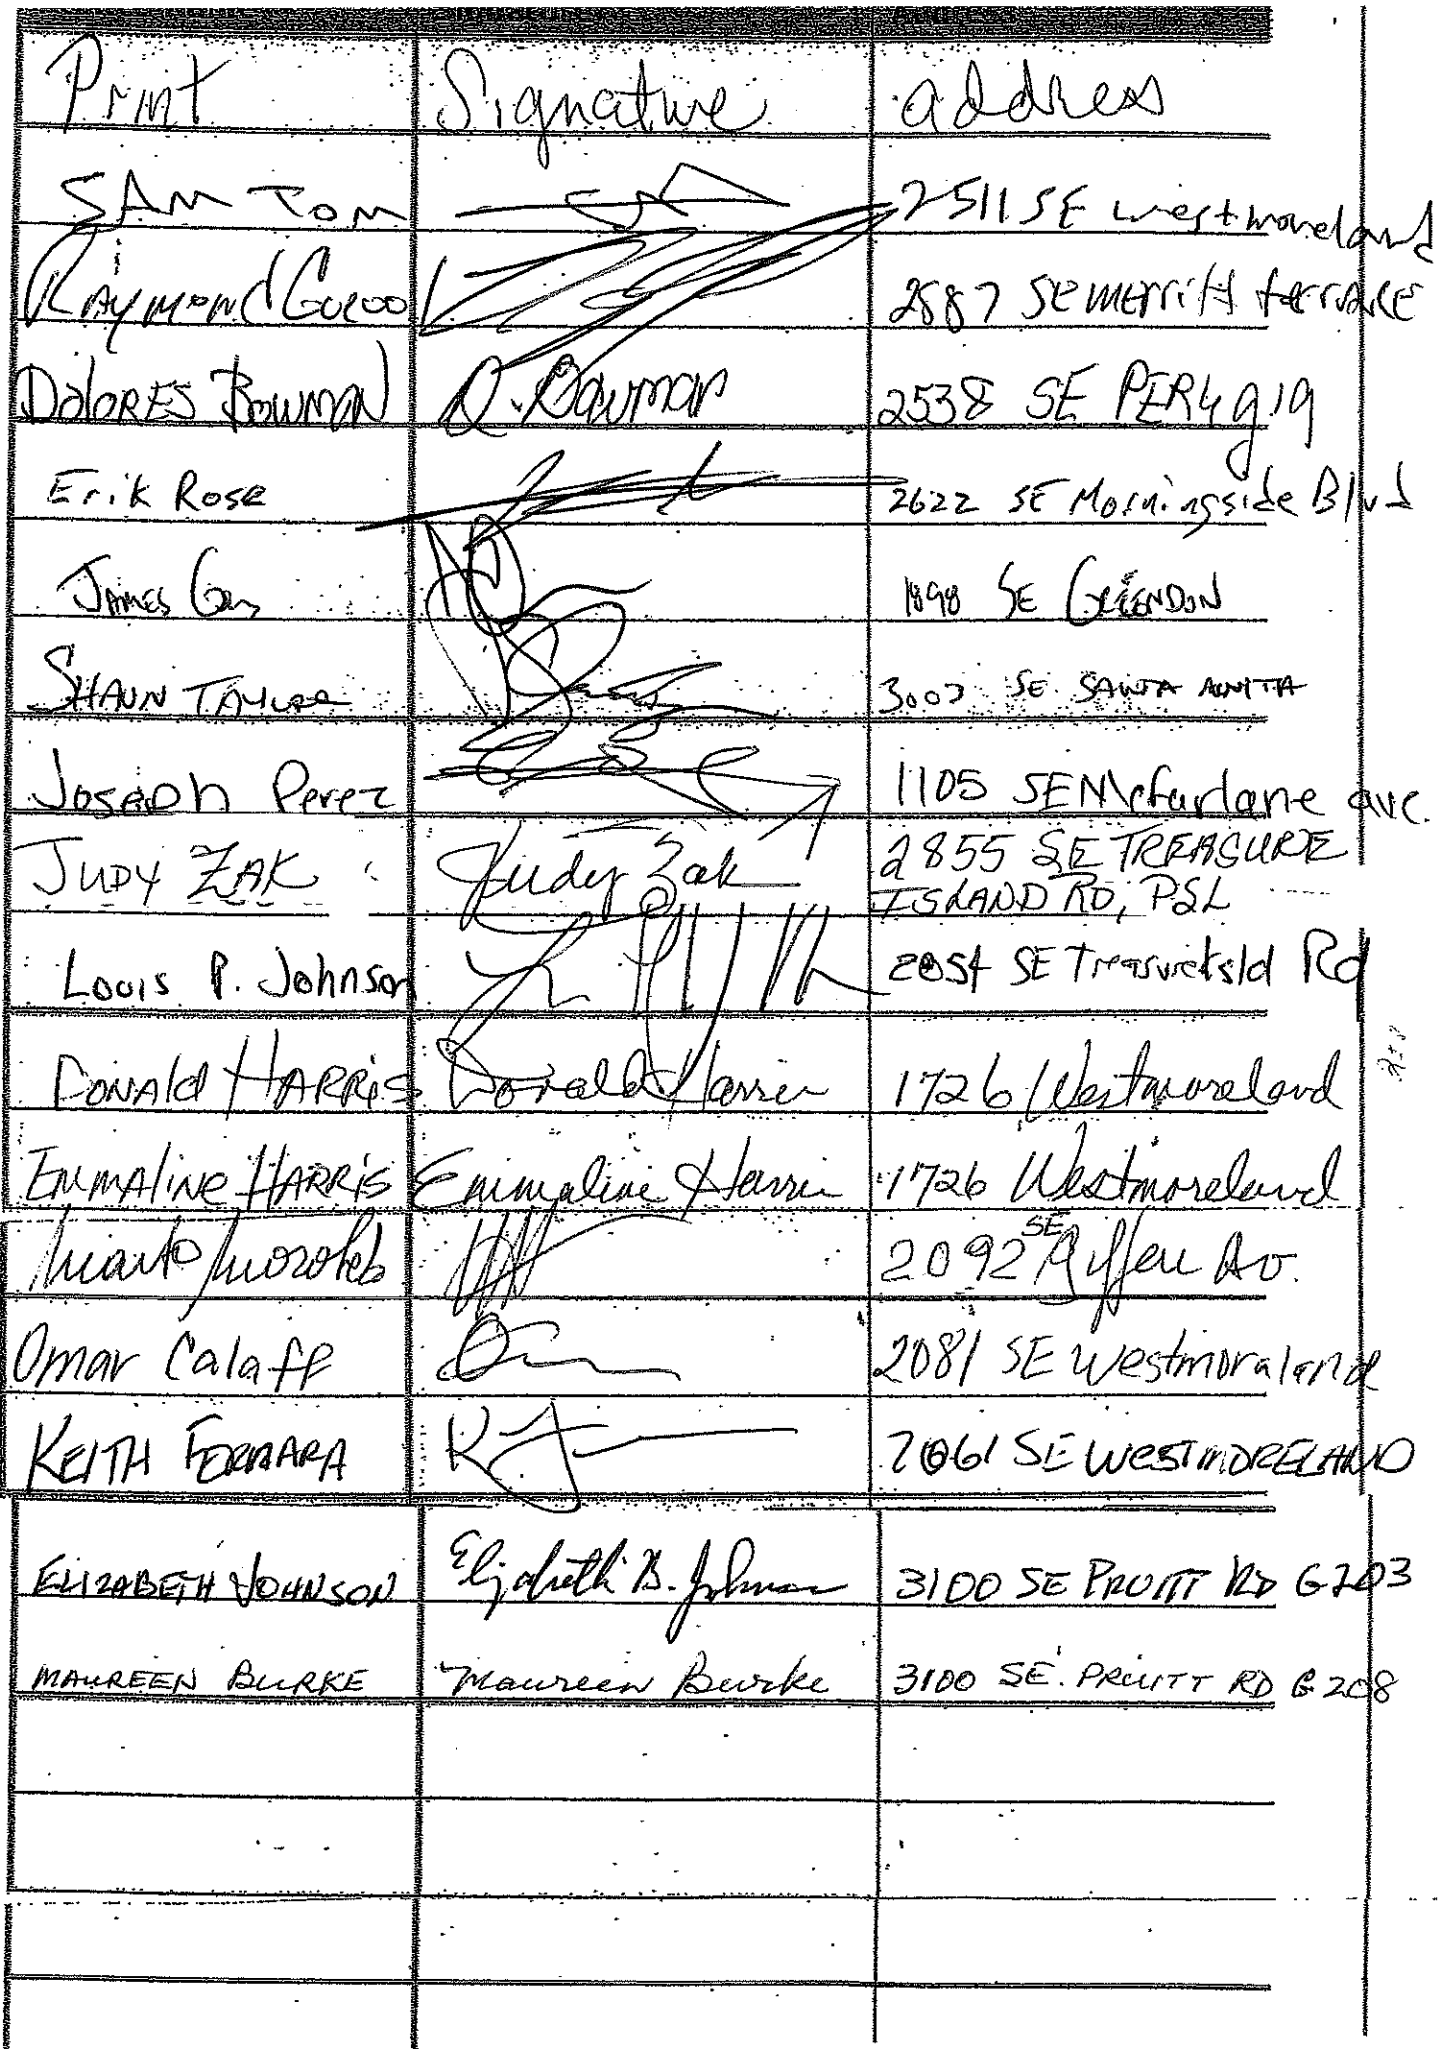 Print Signature address
SAM TOM 2511 SE westmoreland
Raymond 2887 SE merritt terrace
DoloRES BOWMAN D. Bowman 2538 SE
Erik Rose 2622 SE Morningside Blvd
JAMES 1898 SE
SHAUN TAYLOR 3007 SE SANTA ANITA
Joseph Perez 1105 SE Mcfarlane ave.
JUDY ZAK Judy Zak 2855 SE TREASURE
ISLAND RD, PSL
Louis P. Johnson SE Rd
DONALd HARRiS Donald Harris 1726 Westmoreland
EMMALiNe HARRiS Emmaline Harris 1726 Westmoreland
2092 SE Av.
Omar Calaff 2081 SE Westmoraland
KEITH 2061 SE WESTMORELAND
ELIZABETH JOHNSON Elizabeth B. Johnson 3100 SE PRUITT RD G203
MAUREEN BURKE Maureen Burke 3100 SE. PRUITT RD G208